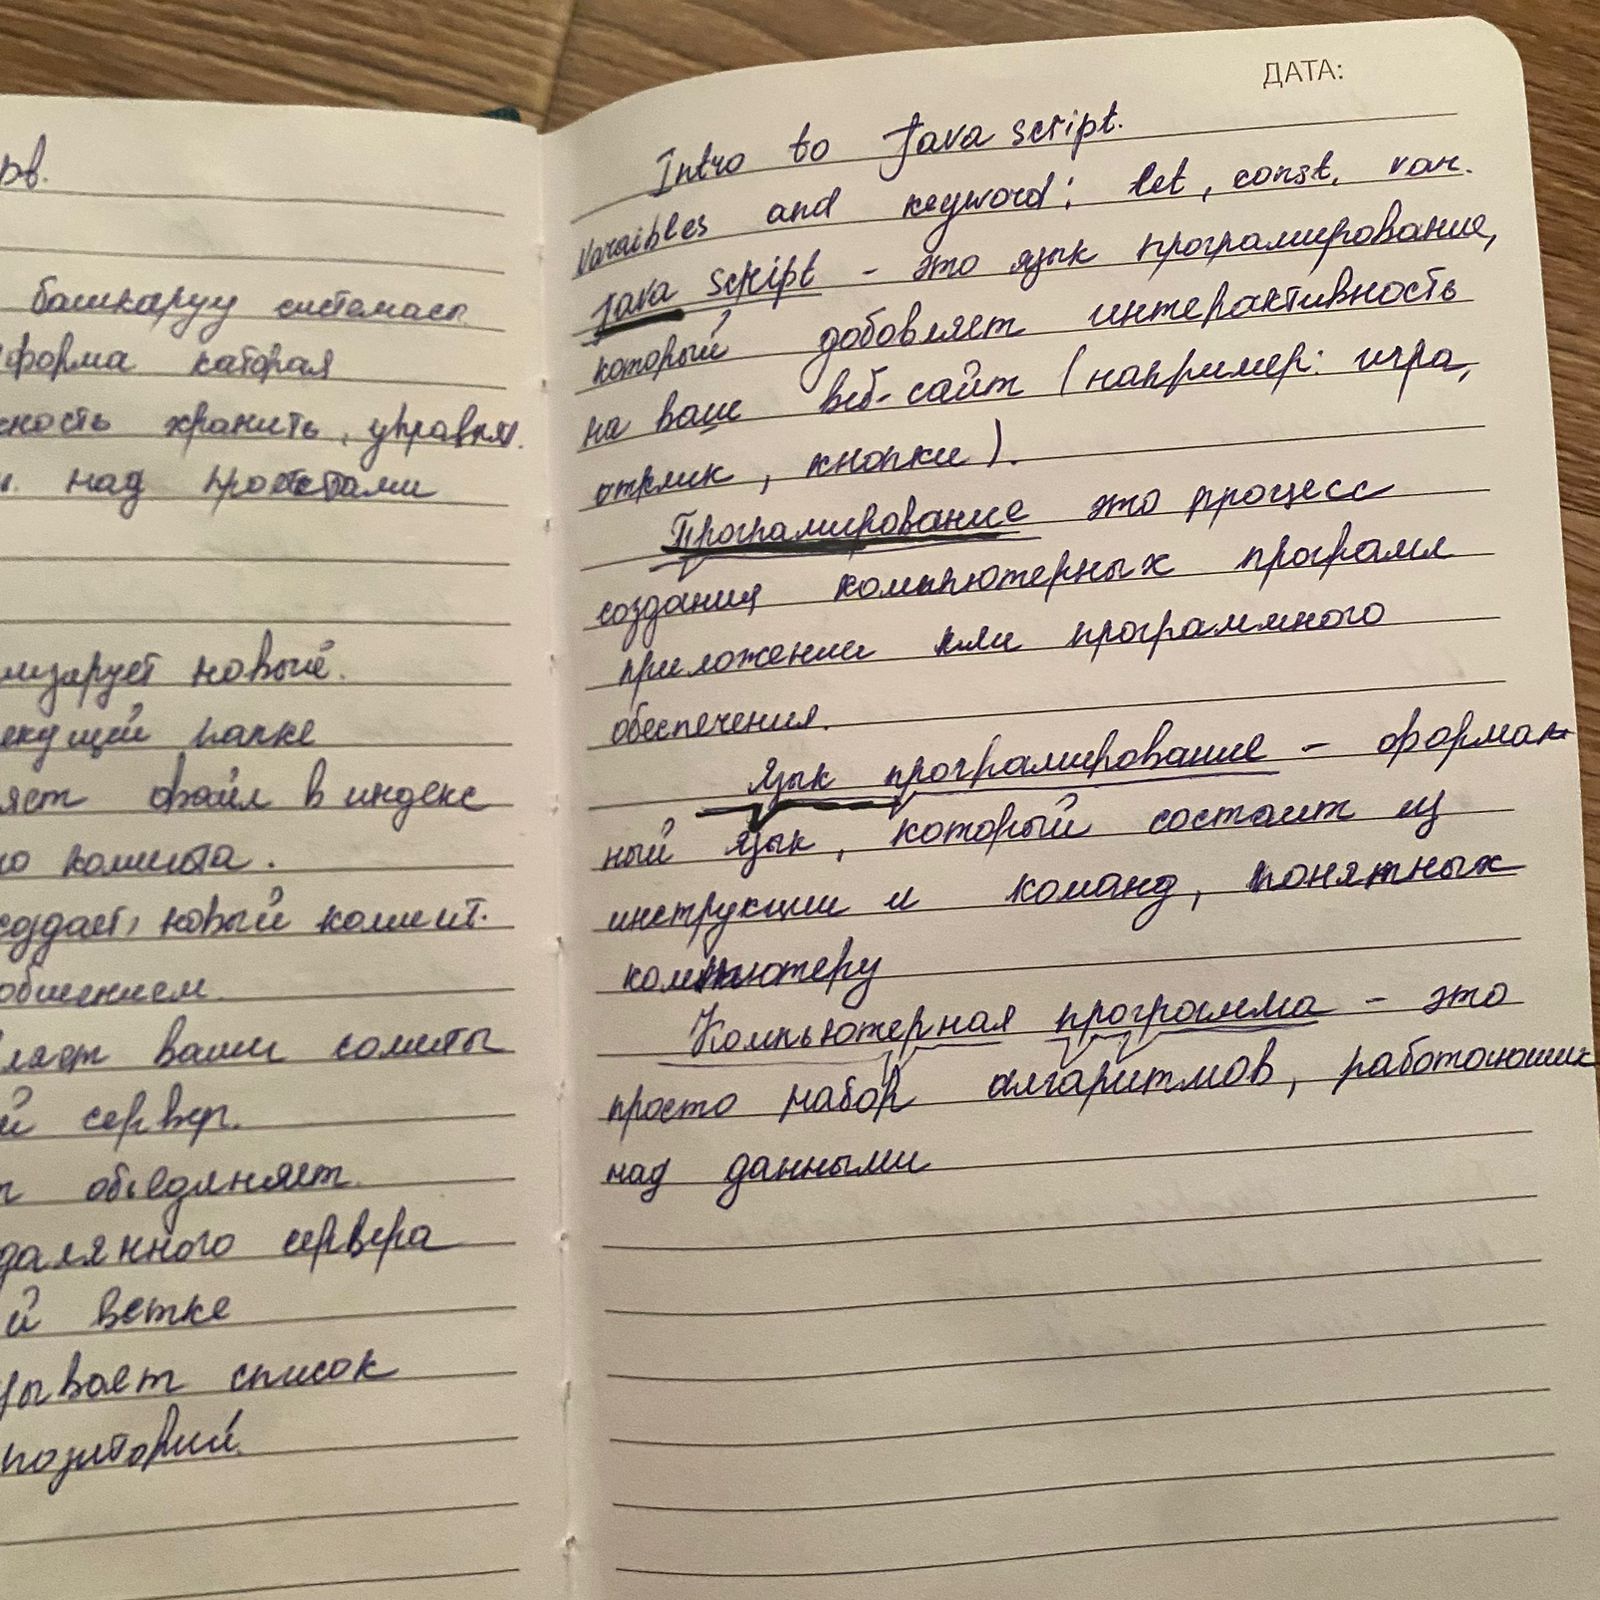 рв.
башкаруу системасы
форма каторая
ность хранить, управлят.
и. над проектами
лизарует новый.
екущий папке
яет файл в индекс
го комита.
создает, новый комит.
общением.
ляет ваши комиты
й сервер.
т обьедляняет.
даленного сервера
й ветке
зывает список
позиторий.
ДАТА:
Intro to Java script.
Varaibles and keyword: let, const, var.
Java script - это язык програмирование,
который добовляет интерактивность
на ваш веб-сайт (например: игра,
отклик, кнопки).
Програмирование это процесс
создания компьютерных программ
приложении или программного
обеспечения.
Язык програмирование - формал
ный язык, который состоит из
инструкции и команд, понятных
компьютеру
Компьютерная программа - это
просто набор алгаритмов, работоюших
над данными